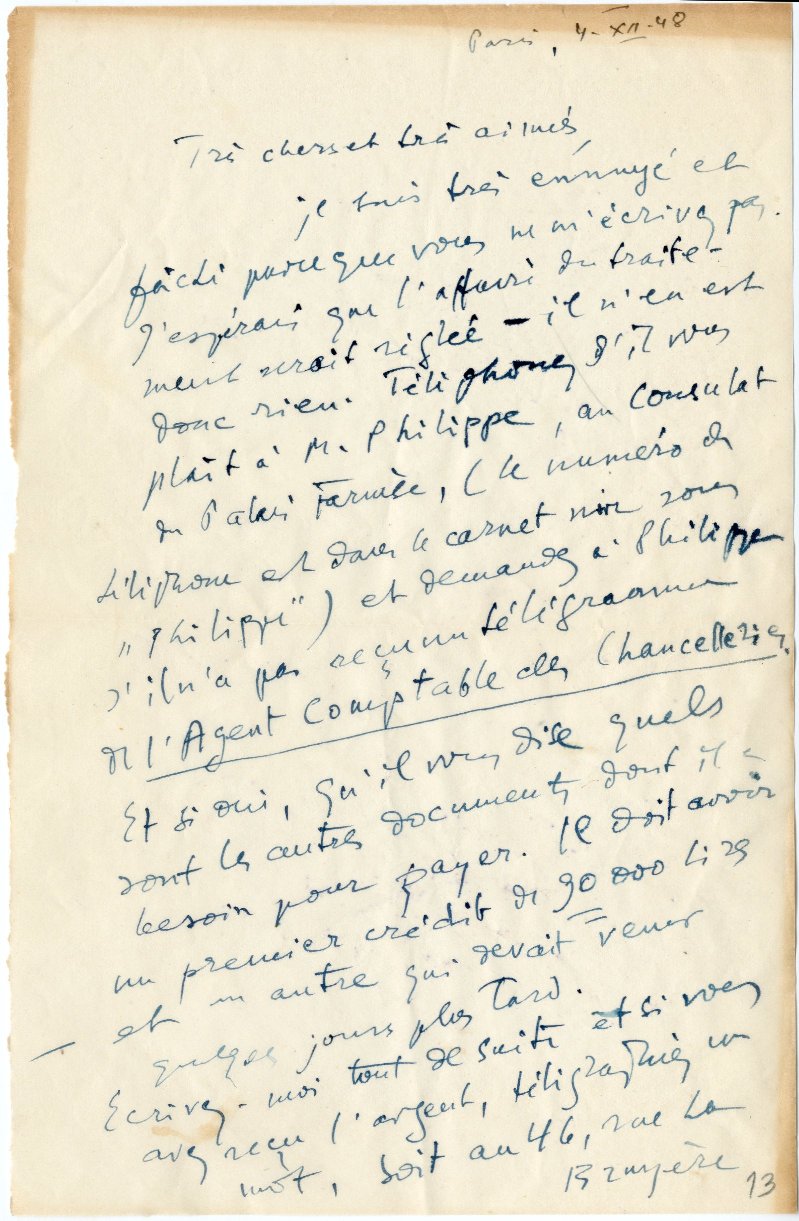 Paris, 4-XII-48
Très chers et très aimés,
je suis très ennuyé et
fâché parce que vous ne m'écrivez pas.
J'espérais que l'affaire du traite-
ment serait réglée – il n'en est
donc rien. Téléphonez s'il vous
plaît à M. Philippe, au Consulat
du Palais Farnèse, (le numéro de
téléphone est dans le carnet noir sous
„Philippe") et demandez à Philippe
s'il n'a pas reçu un télégramme
de l'Agent Comptable des Chancelleries.
Et si oui, qu'il vous dise quels
sont les autres documents dont il a
besoin pour payer. Il doit avoir
un premier crédit de 90 000 lires
et un autre qui devait venir
quelques jours plus tard.
Ecrivez-moi tout de suite et si vous
avez reçu l'argent, télégraphiez un
mot, soit au 46, rue La
Bruyère
13